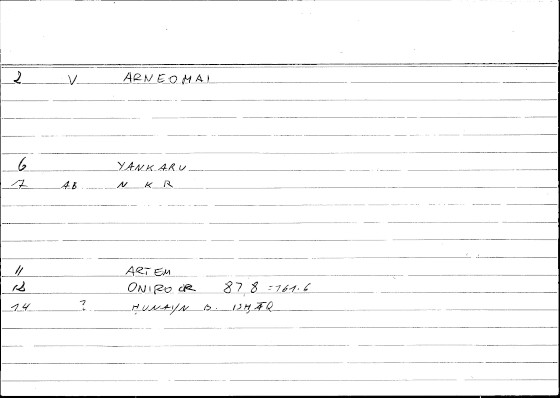 2 V ARNEOMAI
6 YANKARU
7 AB N K R
11 ARTEM
12 ONIROCR 87,8 = 161.6
14 ? ḤUNAYN B. ISḤĀQ